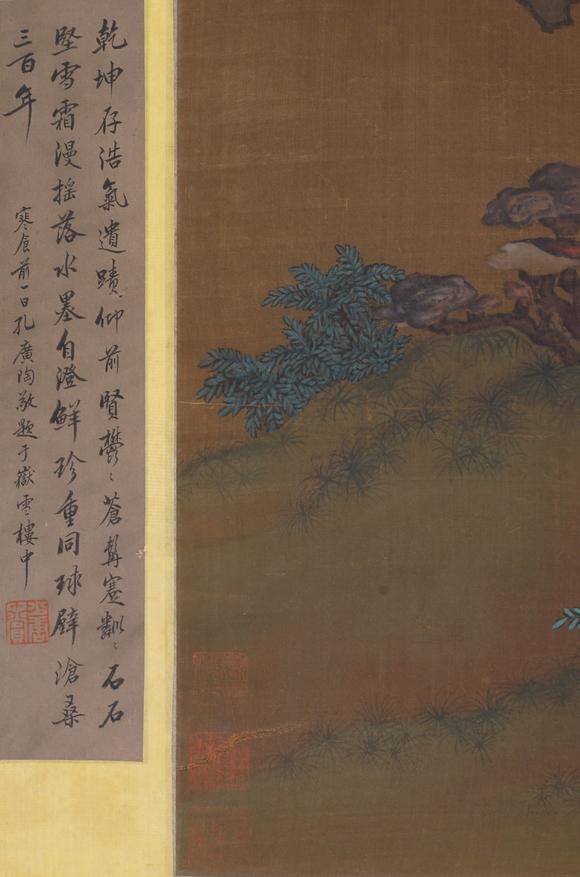 乾坤存浩氣遺蹟仰前賢鬱〻蒼髯蹇粼〻石石
堅雪霜漫搖落水墨自澄鮮珍重同球璧滄桑
三百年
寒食前一日孔廣陶敬題于嶽雪樓中